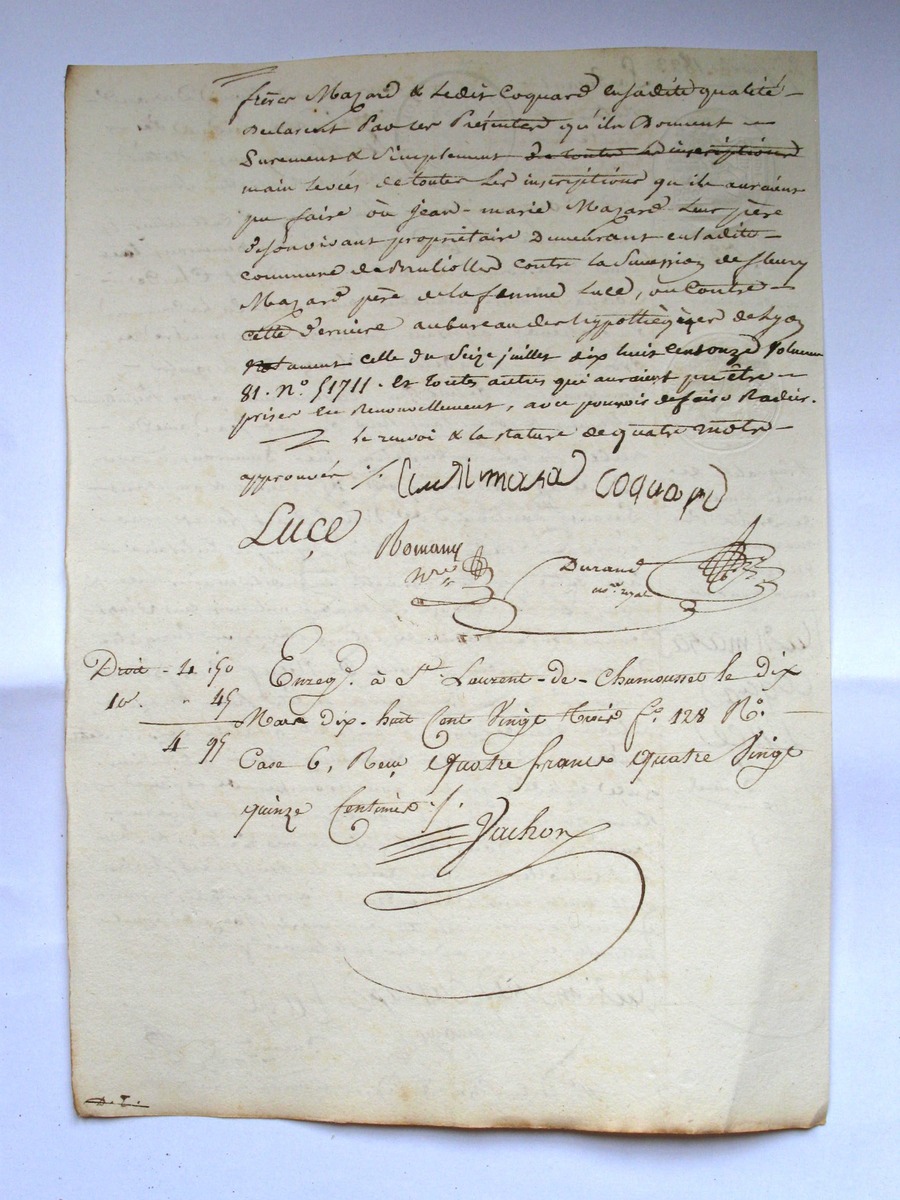 frères Mazard & Ledit Coquard en sadite qualité
Declarent Par les Présentes qu'ils Donnent
Purement & Simplement de toutes les inscriptions
main levées de toutes Les inscriptions qu'ils auraient
pu faire ou Jean-marie Mazard Leur père
de son vivant propriétaire Demeurant en ladite
commune de Brulliolles contre la Succession de fleury
Mazard père de la femme Luce, ou Contre
cette Dernière au bureau des hypothèques de Lyon
Notament celle du Seize juillet dix huit cent onze Volume
81. N°. 51711. Et toutes autres qui auraient pu être
prises en Renouvellement, avec pouvoir de faire Radier.
Le renvoi & la rature de quatre mots
approuvés ./. Mazard Coquard
Luçe
Romany
Nre
Durand
no.re royal
Droit - 4 50
10. " 45
4 95
Enreg.é à St. Laurent-de-Chamousset le dix
Mars dix-huit Cent Vingt trois f.o 128 R.o
Case 6, Reçu quatre francs quatre Vingt
quinze Centimes ./.
Vachon
D.T.